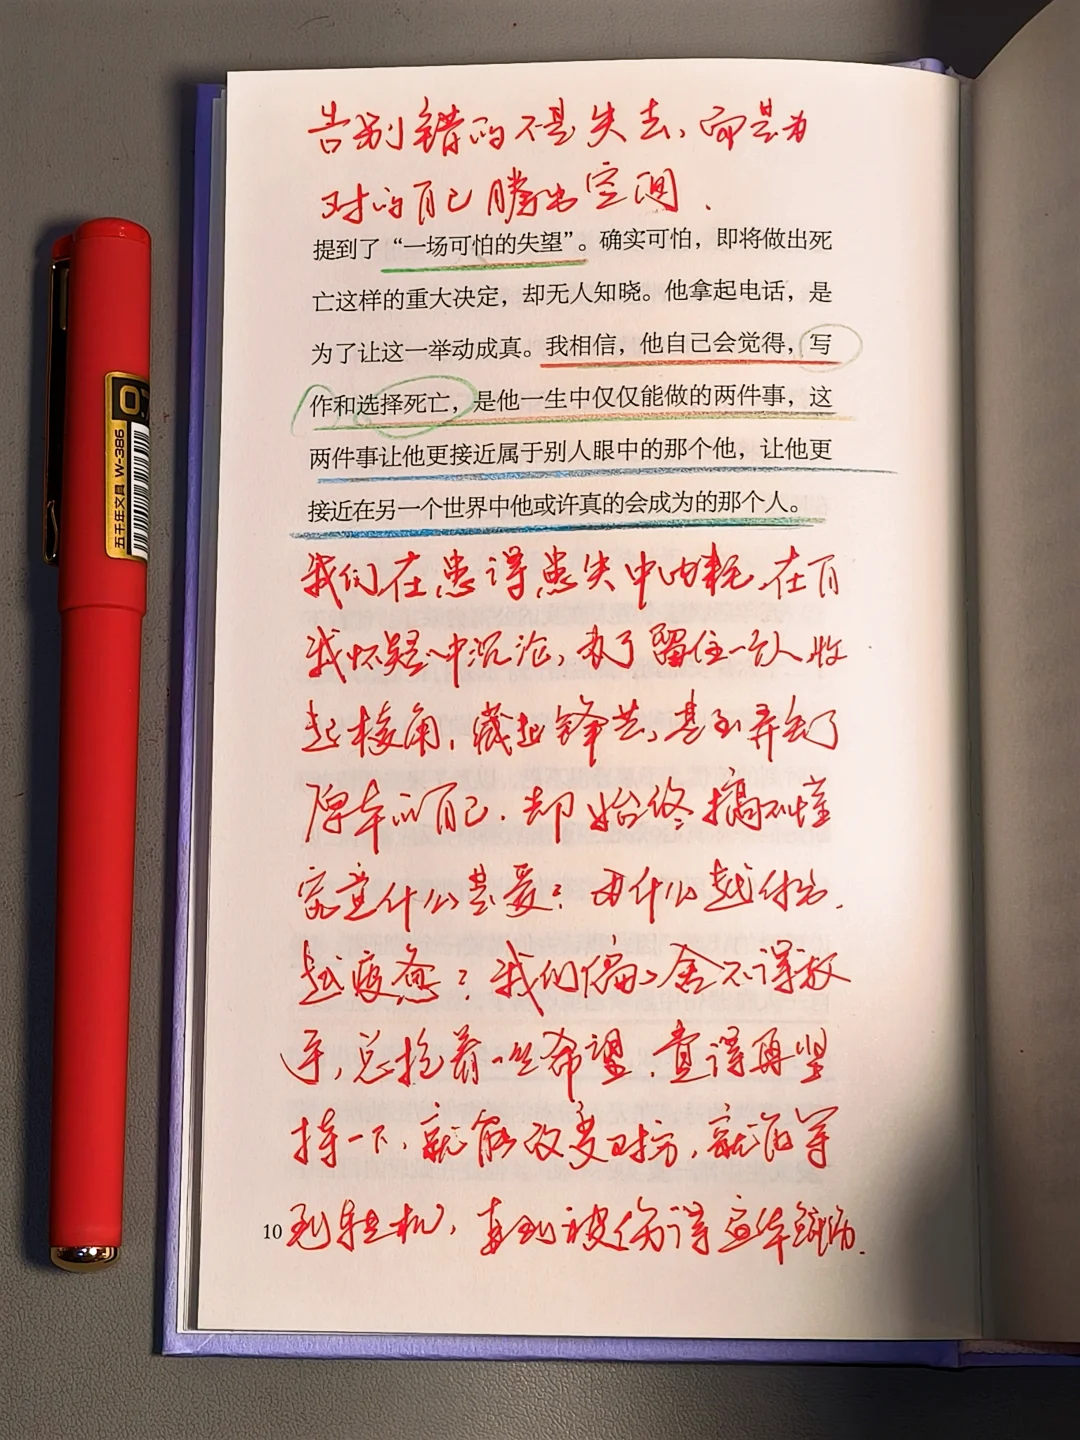 告别错的不是失去、而是为
对的自己腾出空间.
提到了“一场可怕的失望”。确实可怕，即将做出死
亡这样的重大决定，却无人知晓。他拿起电话，是
为了让这一举动成真。我相信，他自己会觉得，写
作和选择死亡，是他一生中仅仅能做的两件事，这
两件事让他更接近属于别人眼中的那个他，让他更
接近在另一个世界中他或许真的会成为的那个人。
我们在患得患失中内耗、在自
我怀疑中沉沦，为了留住一个人收
起棱角，藏起锋芒，甚至弄丢了
原本的自己.却始终搞不懂
究竟什么是爱？为什么越付出.
越疲惫？我们偏偏舍不得放
手，总抱着一丝希望.觉得再坚
持一下、就能改变对方，就能等
10 到转机，直到被伤得遍体鳞伤.
0.7
五千年文具 W-386